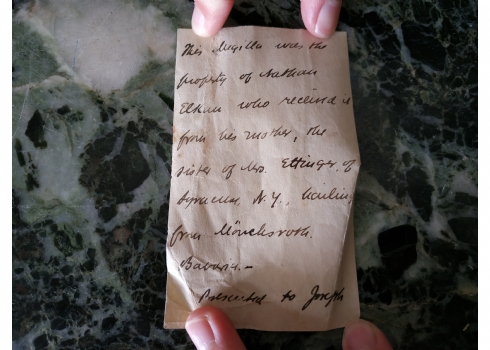 This Megilla was the
property of Nathan
Elkan who received it
from his mother, the
sister of Mrs. Ettinger of
Syracuse, N.Y., hailing
from Mönchsroth.
Bavaria.—
Presented to Joseph